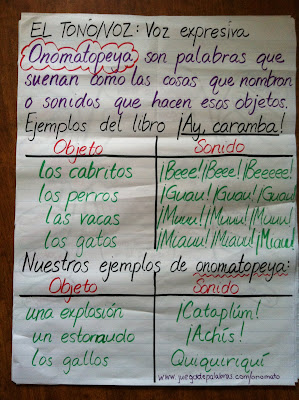 EL TONO/VOZ: Voz expresiva
Onomatopeya son palabras que
suenan como las cosas que nombran
o sonidos que hacen esos objetos.
Ejemplos del libro ¡Ay, caramba!
Objeto Sonido
los cabritos ¡Beee! ¡Beee! ¡Beeeee!
los perros ¡Guau! ¡Guau! ¡Guau!
las vacas ¡Muuu! ¡Muuu! ¡Muuu!
los gatos ¡Miau! ¡Miau! ¡Miau!
Nuestros ejemplos de onomatopeya:
Objeto Sonido
una explosión ¡Cataplúm!
un estornudo ¡Achís!
los gallos Quiquiriquí
www.juegosdepalabras.com/onomato